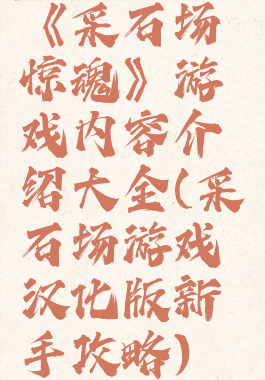 《采石场
惊魂》游
戏内容介
绍大全(采
石场游戏
汉化版新
手攻略)